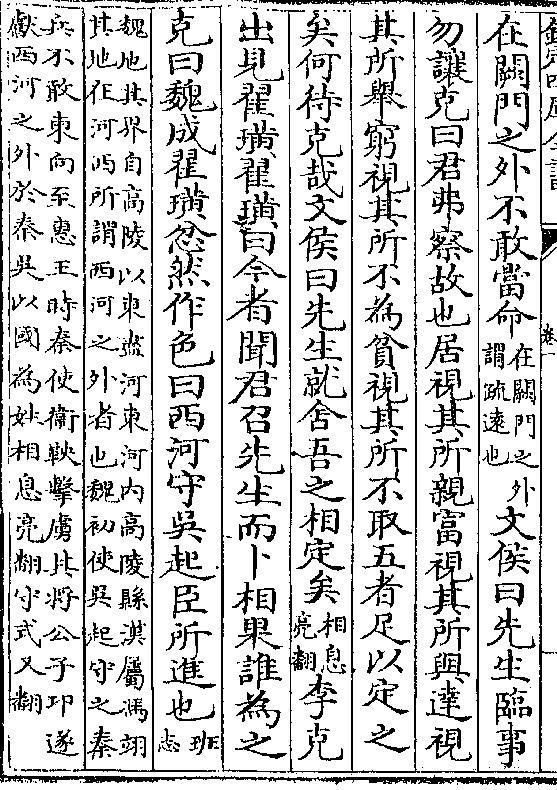 欽定四庫全書
卷一
在闕門之外不敢當命在闕門之外謂疏遠也文侯曰先生臨事
勿讓克曰君弗察故也居視其所親富視其所與達視
其所舉窮視其所不為貧視其所不取五者足以定之
矣何待克哉文侯曰先生就舍吾之相定矣相息亮翻李克
出見翟璜翟璜曰今者聞君召先生而卜相果誰為之
克曰魏成翟璜忿然作色曰西河守吳起臣所進也班志
魏地其界自高陵以東盡河東河内高陵縣漢屬馮翊
其地在河西所謂西河之外者也魏初使吳起守之秦
兵不敢東向至惠王時秦使衛鞅擊虜其將公子卬遂
獻西河之外於秦吳以國為姓相息亮翻守式又翻